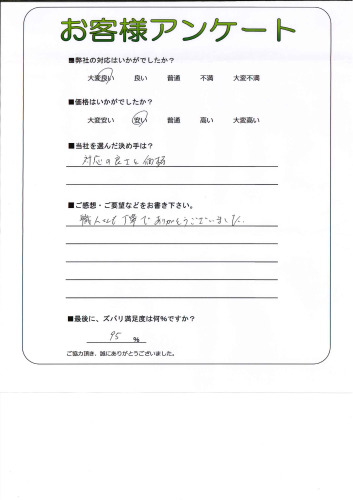 お客様アンケート
■弊社の対応はいかがでしたか？
大変良い　良い　普通　不満　大変不満
■価格はいかがでしたか？
大変安い　安い　普通　高い　大変高い
■当社を選んだ決め手は？
対応の良さと価格
■ご感想・ご要望などをお書き下さい。
職人さんも丁寧でありがとうございました。
■最後に、ズバリ満足度は何％ですか？
95 ％
ご協力頂き、誠にありがとうございました。